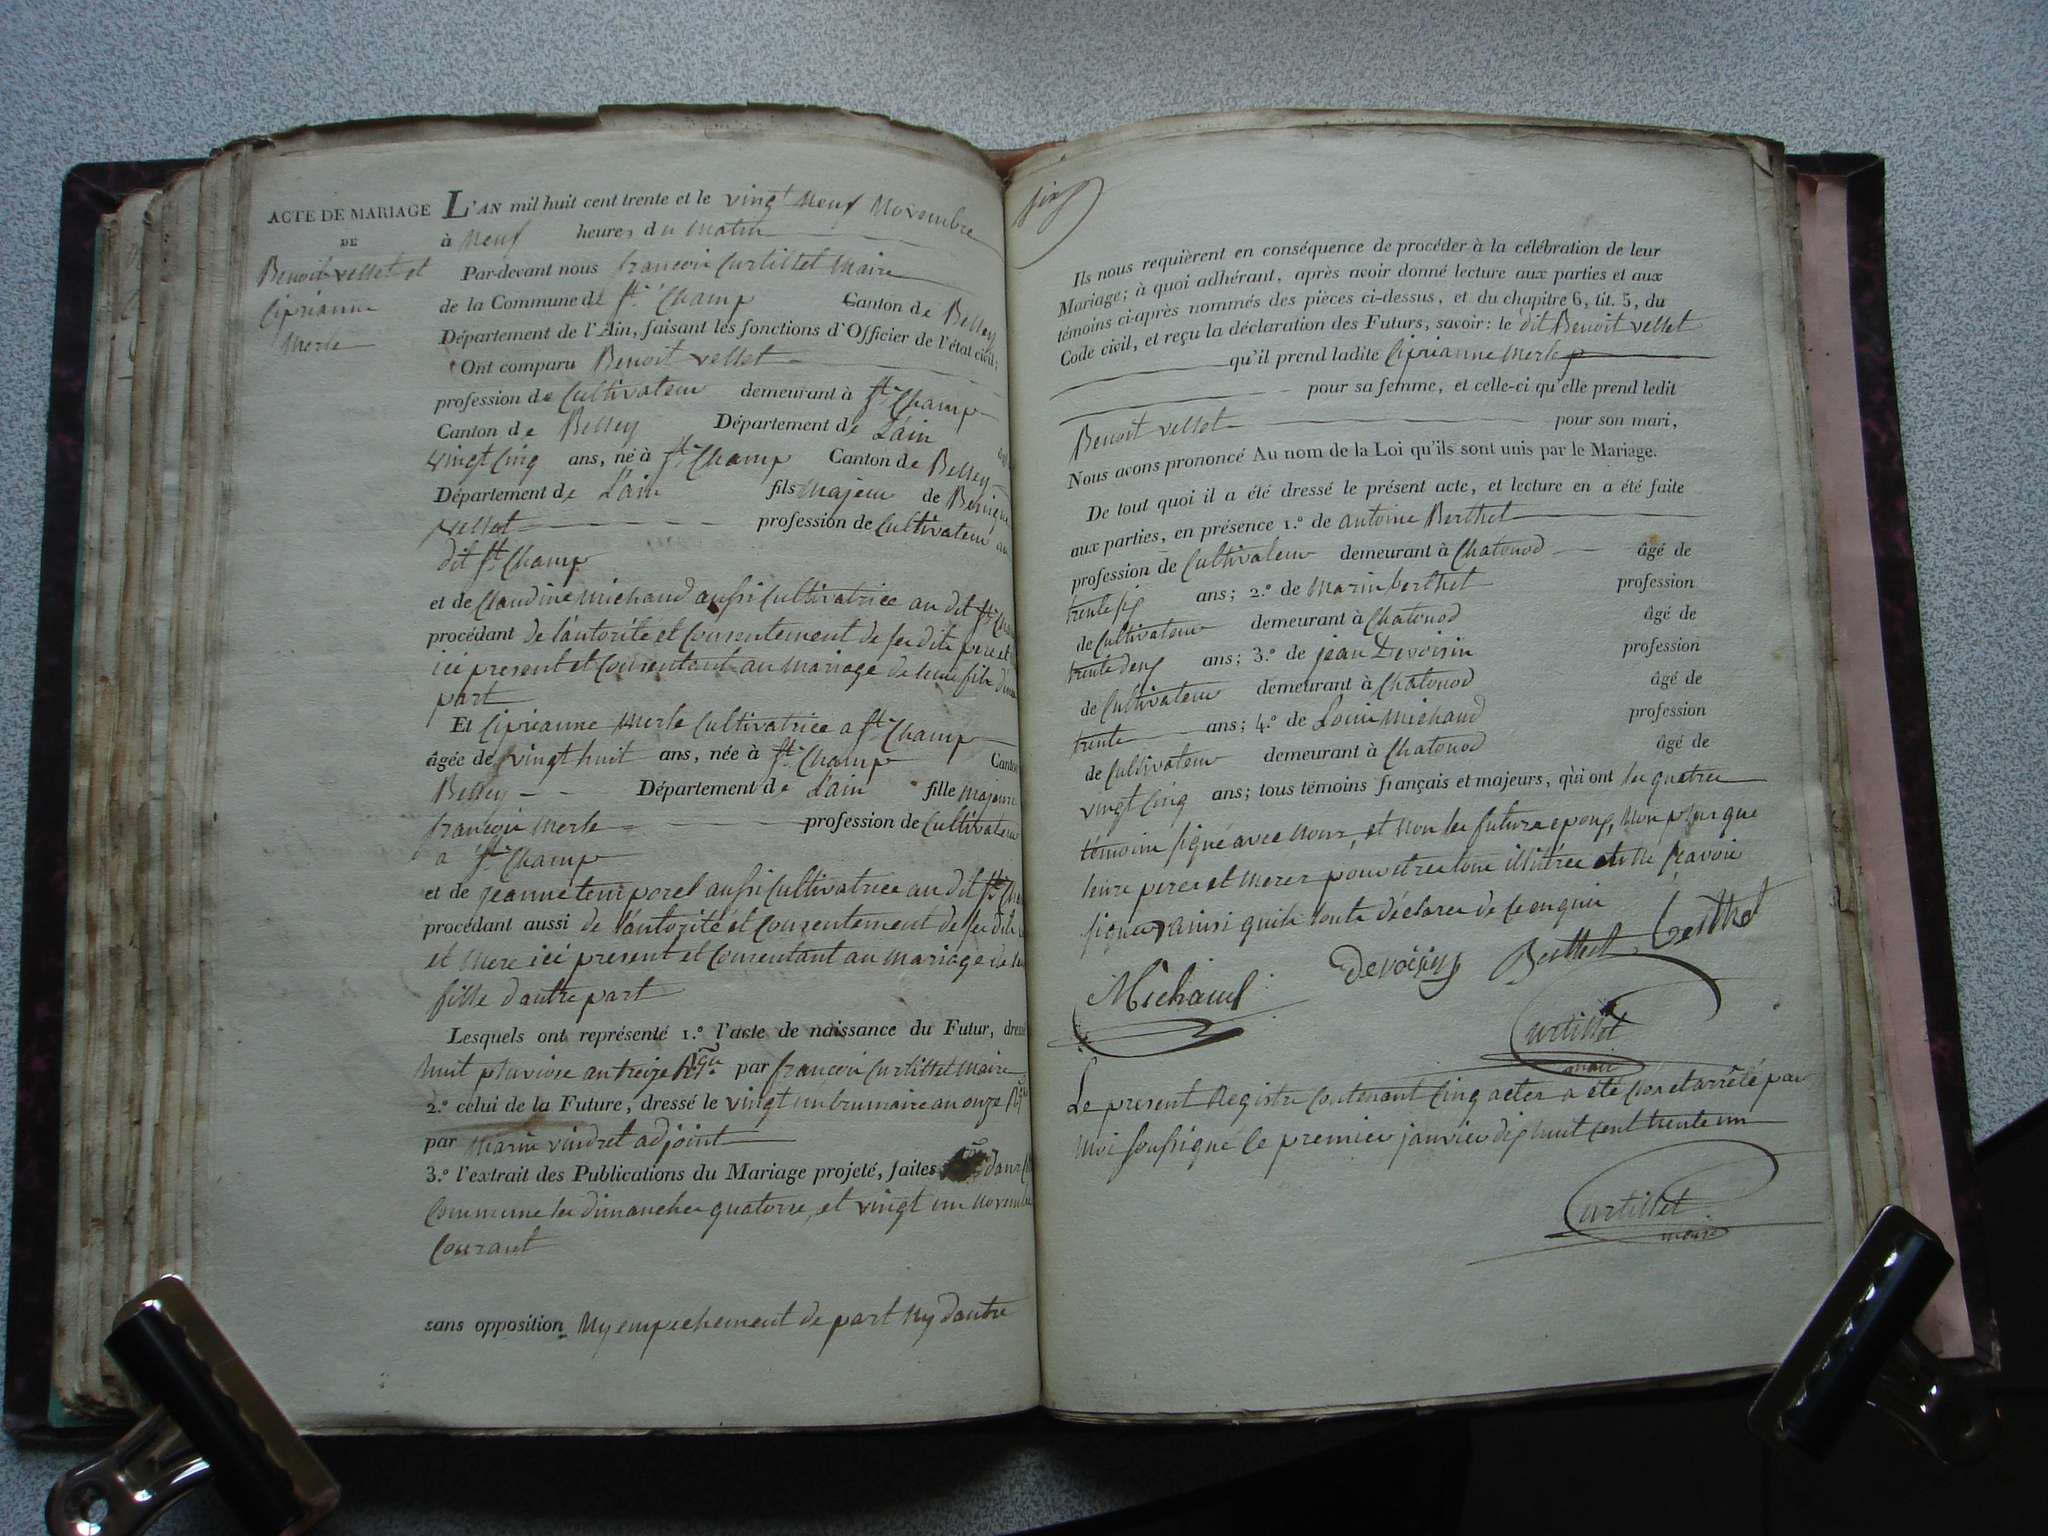 ACTE DE MARIAGE
DE
Benoit vellet et
Ciprianne
Merle
L'AN mil huit cent trente et le vingt neuf Novembre
à neuf heures du matin
Par-devant nous françois Curtillet Maire
de la Commune de St. Champ Canton de Belley
Département de l'Ain, faisant les fonctions d'Officier de l'état civil;
Ont comparu Benoit vellet
profession de Cultivateur demeurant à St. Champ
Canton de Belley Département de L'ain
vingt cinq ans, né à St. Champ Canton de Belley
Département de L'ain fils majeur de Benigne
vellet profession de Cultivateur au
dit St. Champ
et de Claudine michaud aussi Cultivatrice au dit St.
procédant de l'autorité et Consentement de ses dits pere et
ici present et Consentant au mariage de leur fils d'une
part
Et Ciprianne Merle Cultivatrice a St. Champ
âgée de vingt huit ans, née à St. Champ Canton
Belley Département de L'ain fille majeure
françois merle profession de Cultivateur
a St. Champ
et de jeanne temporel aussi Cultivatrice au dit St.
procédant aussi de l'autorité et Consentement de ses dits
et mere ici present et Consentant au mariage de
fille dautre part
Lesquels ont représenté 1.º l'acte de naissance du Futur, dressé
huit pluviose an treize par françois Curtillet Maire
2.º celui de la Future, dressé le vingt un brumaire an onze
par Marin vindret adjoint
3.º l'extrait des Publications du Mariage projeté, faites dans
Commune les dimanches quatorze, et vingt un Novembre
Courant
sans opposition Ny empechement de part Ny dautre
six
Ils nous requièrent en conséquence de procéder à la célébration de leur
Mariage; à quoi adhérant, après avoir donné lecture aux parties et aux
témoins ci-après nommés des pièces ci-dessus, et du chapitre 6, tit. 5, du
Code civil, et reçu la déclaration des Futurs, savoir: le dit Benoit vellet
qu'il prend ladite Ciprianne Merle
pour sa femme, et celle-ci qu'elle prend ledit
Benoit vellet pour son mari,
Nous avons prononcé Au nom de la Loi qu'ils sont unis par le Mariage.
De tout quoi il a été dressé le présent acte, et lecture en a été faite
aux parties, en présence 1.º de antoine Berthet
profession de Cultivateur demeurant à Chatonod âgé de
trente six ans; 2.º de marin berthet profession
de Cultivateur demeurant à Chatonod âgé de
trente deux ans; 3.º de jean Devoisin profession
de Cultivateur demeurant à Chatonod âgé de
trente ans; 4.º de Louis michaud profession
de Cultivateur demeurant à Chatonod âgé de
vingt cinq ans; tous témoins français et majeurs, qui ont les quatres
témoins signé avec nous, et non les futurs epoux, Non plus que
leurs peres et meres pour etres tous illitérés savoir
signer ainsi quils lonts déclares de ce enquis
Michaud devoisin Berthet berthet
Curtillet
maire
Le present Registre Contenant Cinq actes a été clos et arrêté par
moi soussigné le premier janvier dix huit Cent trente un
Curtillet
maire